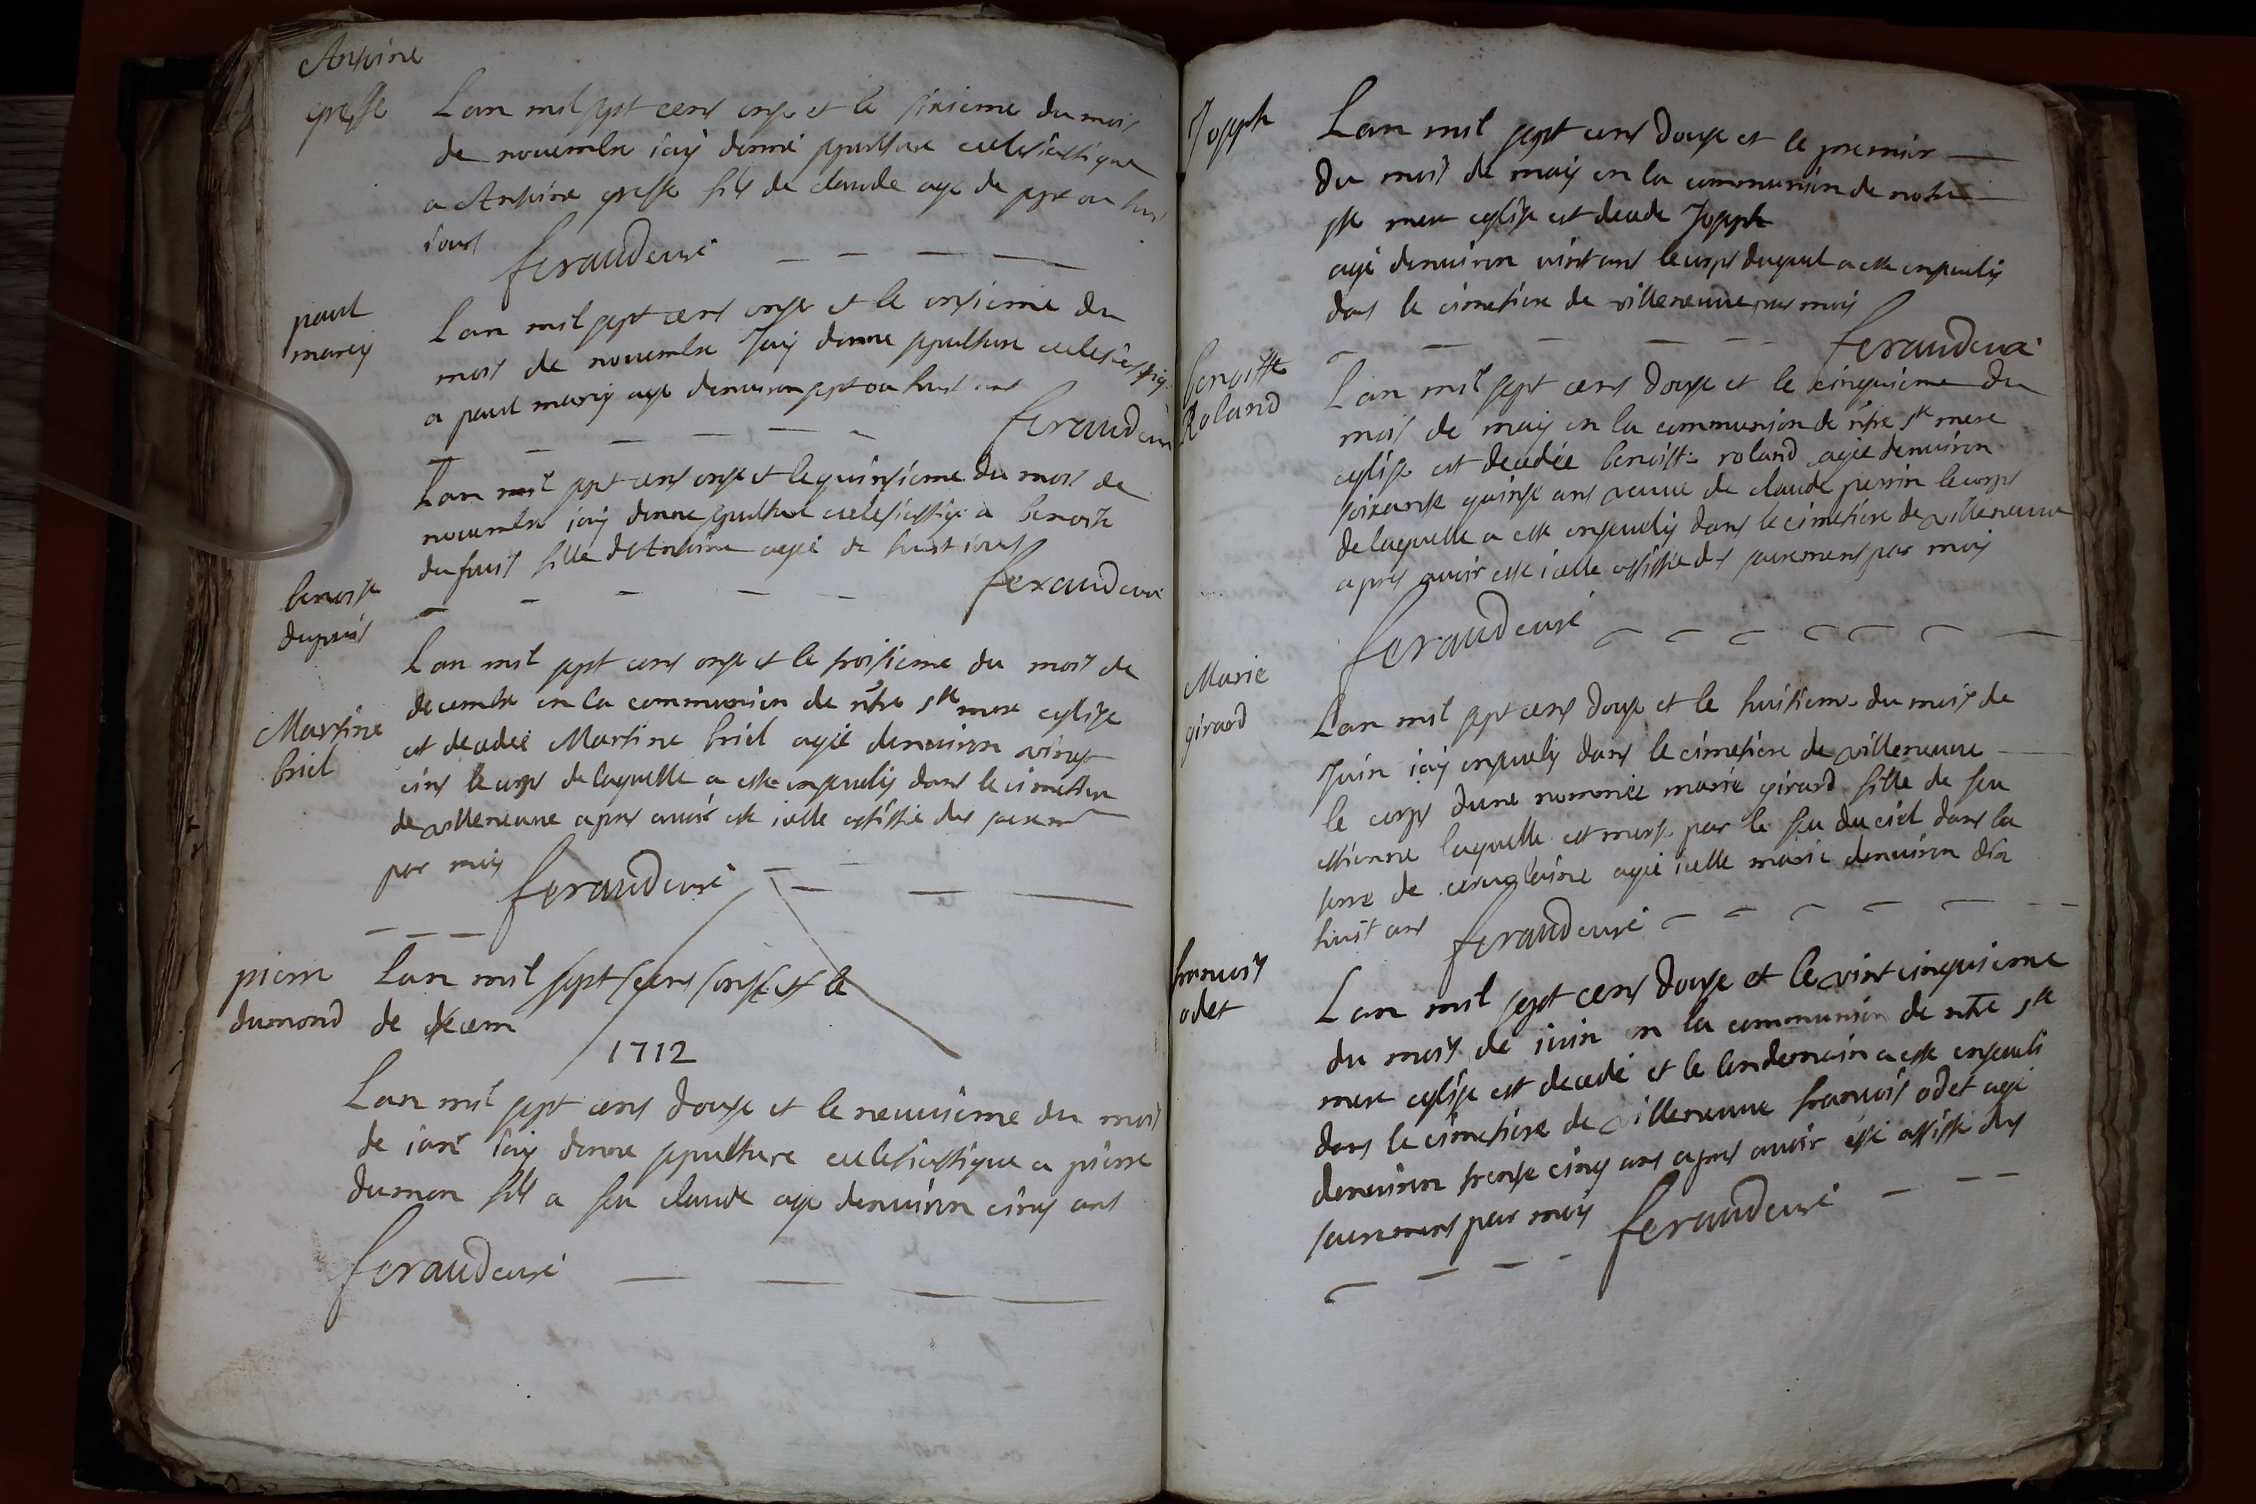 Antoine
gresse
Lan mil sept cens onse et le sixieme du mois
de novembre iay donné sepulture eclesiastique
a Antoine gresse fils de claude age de sept ou huit
iours
feraud curé
paul
marey
Lan mil sept cens onse et le onsieme du
mois de novembre Jay donne sepulture eclesiastiq
a paul marey age denviron sept ou huit ans
feraud curé
benoiste
dupuis
Lan mil sept cens onse et le quinsieme du mois de
novembre iay donne sepulture eclesiastiq a benoiste
du puis fille dAntoine agée de huit iours
feraud curé
Martine
briel
Lan mil sept cens onse et le troisieme du mois de
decembre en la communion de ntre ste mere eglise
est decedée Martine briel agée denviron vingt
cinq le corps de laquelle a este ensevely dans le cimetiere
de villeneuve apres avoir este icelle assistée des sacremts
par moy
feraud curé
pierre
dumond
Lan mil sept cens onse et le
de decem
1712
Lan mil sept cens douse et le neuvieme du mois
de ianr iay donne sepulture eclesiastique a pierre
dumon fils a feu claude age denviron cinq ans
feraud curé
Joseph
Lan mil sept cens douse et le premier
du mois de may en la communion de notre
ste mere eglise est decede Joseph
agé denviron vint ans le corps duquel a este ensevely
dans le cimetiere de villeneuve par moy
feraud curé
benoiste
Roland
Lan mil sept cens douse et le cinquieme du
mois de may en la communion de ntre ste mere
eglise est decedée benoiste roland agée denviron
soixante quinse ans veuve de claude perrin le corps
de laquelle a este ensevely dans le cimetiere de villeneuve
apres avoir este icelle assistée des sacremens par moy
feraud curé
Marie
girard
Lan mil sept cens douse et le huitieme du mois de
Juin iay ensevely dans le cimetiere de villeneuve
le corps dune nommée marie girard fille de feu
estienne laquelle est morte par le feu du ciel dans la
terre de agée icelle marie denviron dix
huit ans
feraud curé
francois
odet
Lan mil sept cens douse et le vint cinquieme
du mois de iuin en la communion de ntre ste
mere eglise est decedé et le lendemain a este enseveli
dans le cimetiere de villeneuve francois odet agé
denviron trente cinq ans apres avoir esté assisté des
sacremens par moy
feraud curé